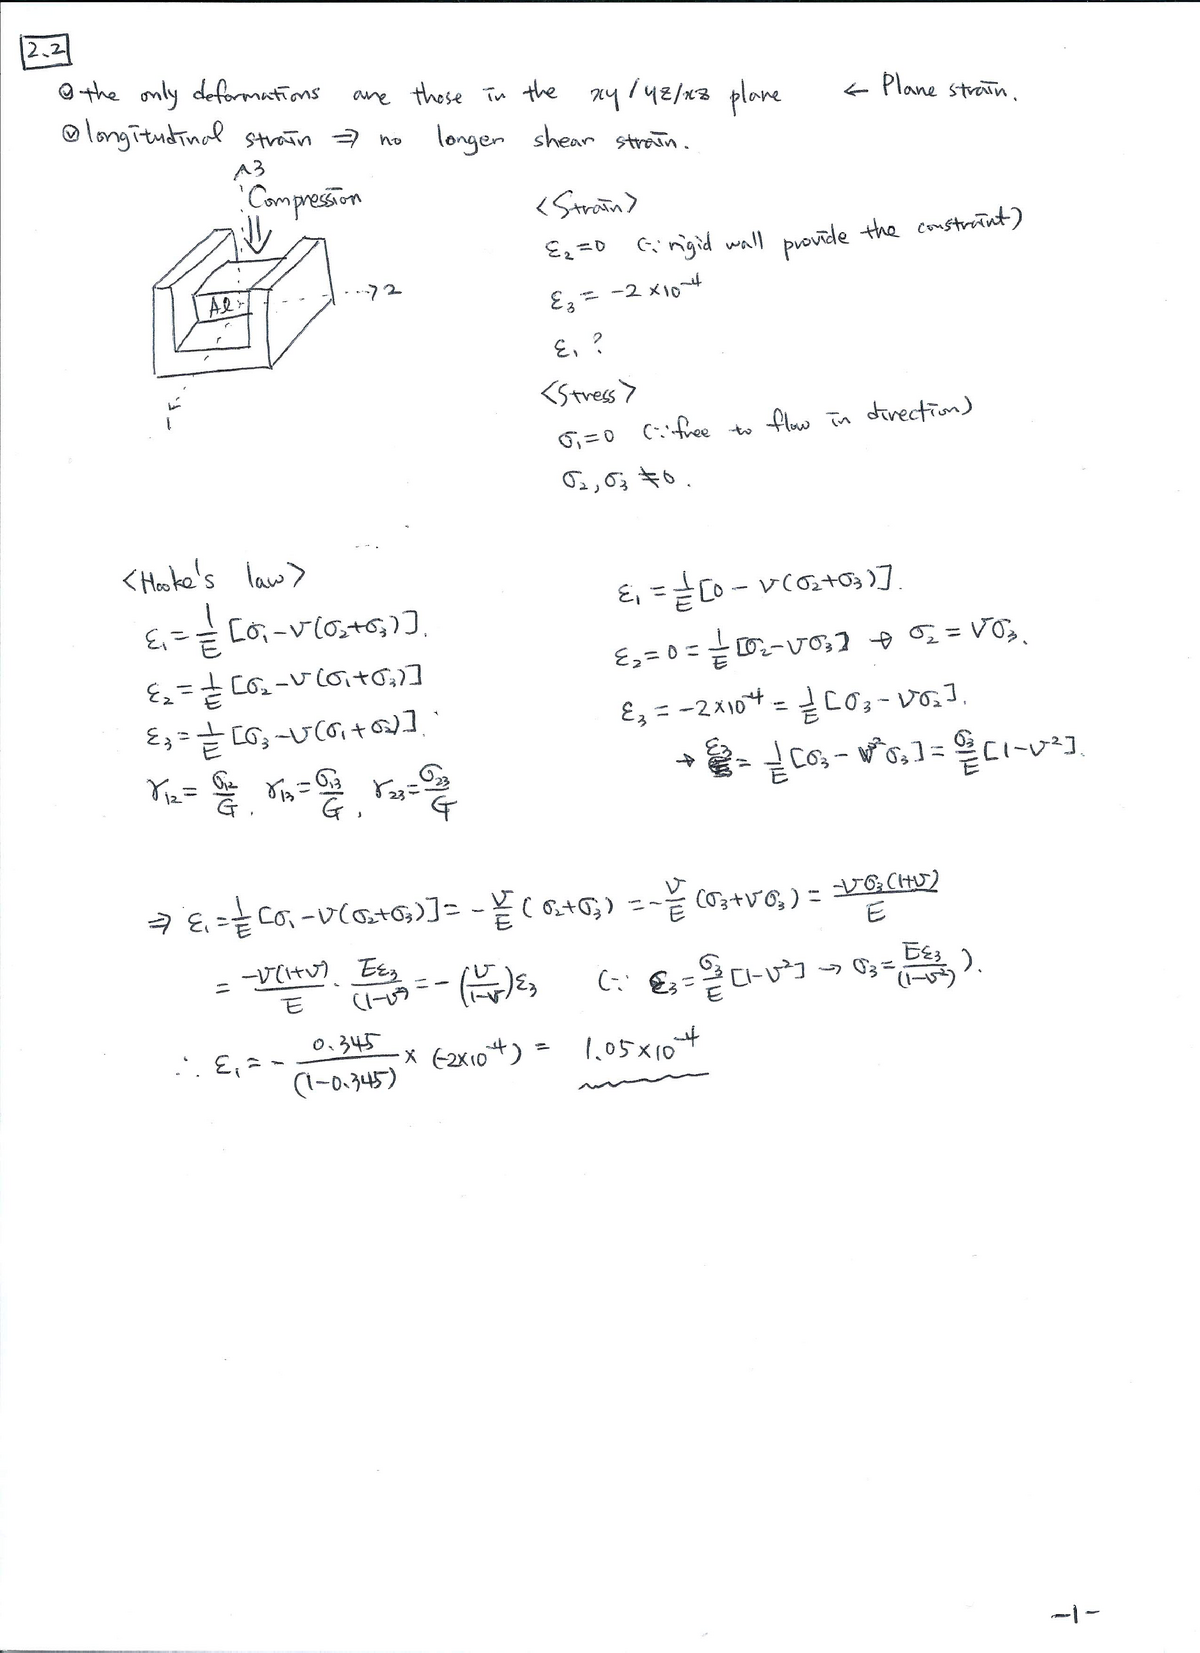 2.2
① the only deformations are those in the xy/yz/xz plane ← Plane strain.
② longitudinal strain ⇒ no longer shear strain.
3
Compression
Al
2
1
<Strain>
ε₂=0 (∵ rigid wall provide the constraint)
ε₃ = -2×10⁻⁴
ε₁ ?
<Stress>
σ₁=0 (∵ free to flow in direction)
σ₂,σ₃ ≠0.
<Hooke's law>
ε₁ = 1/E [σ₁-ν(σ₂+σ₃)].
ε₂ = 1/E [σ₂-ν(σ₁+σ₃)]
ε₃ = 1/E [σ₃-ν(σ₁+σ₂)].
γ₁₂ = σ₁₂/G, γ₁₃ = σ₁₃/G, γ₂₃ = σ₂₃/G
ε₁ = 1/E [0 - ν(σ₂+σ₃)].
ε₂ = 0 = 1/E [σ₂-νσ₃] → σ₂ = νσ₃.
ε₃ = -2×10⁻⁴ = 1/E [σ₃-νσ₂].
→ ε₃ = 1/E [σ₃ - ν²σ₃] = σ₃/E [1-ν²].
⇒ ε₁ = 1/E [σ₁-ν(σ₂+σ₃)] = -ν/E (σ₂+σ₃) = -ν/E (σ₃+νσ₃) = -νσ₃(1+ν)/E
= -ν(1+ν)/E · Eε₃/(1-ν²) = -(ν/1-ν)ε₃ (∵ ε₃ = σ₃/E [1-ν²] → σ₃ = Eε₃/(1-ν²)).
∴ ε₁ = - 0.345/(1-0.345) × (-2×10⁻⁴) = 1.05×10⁻⁴
-1-